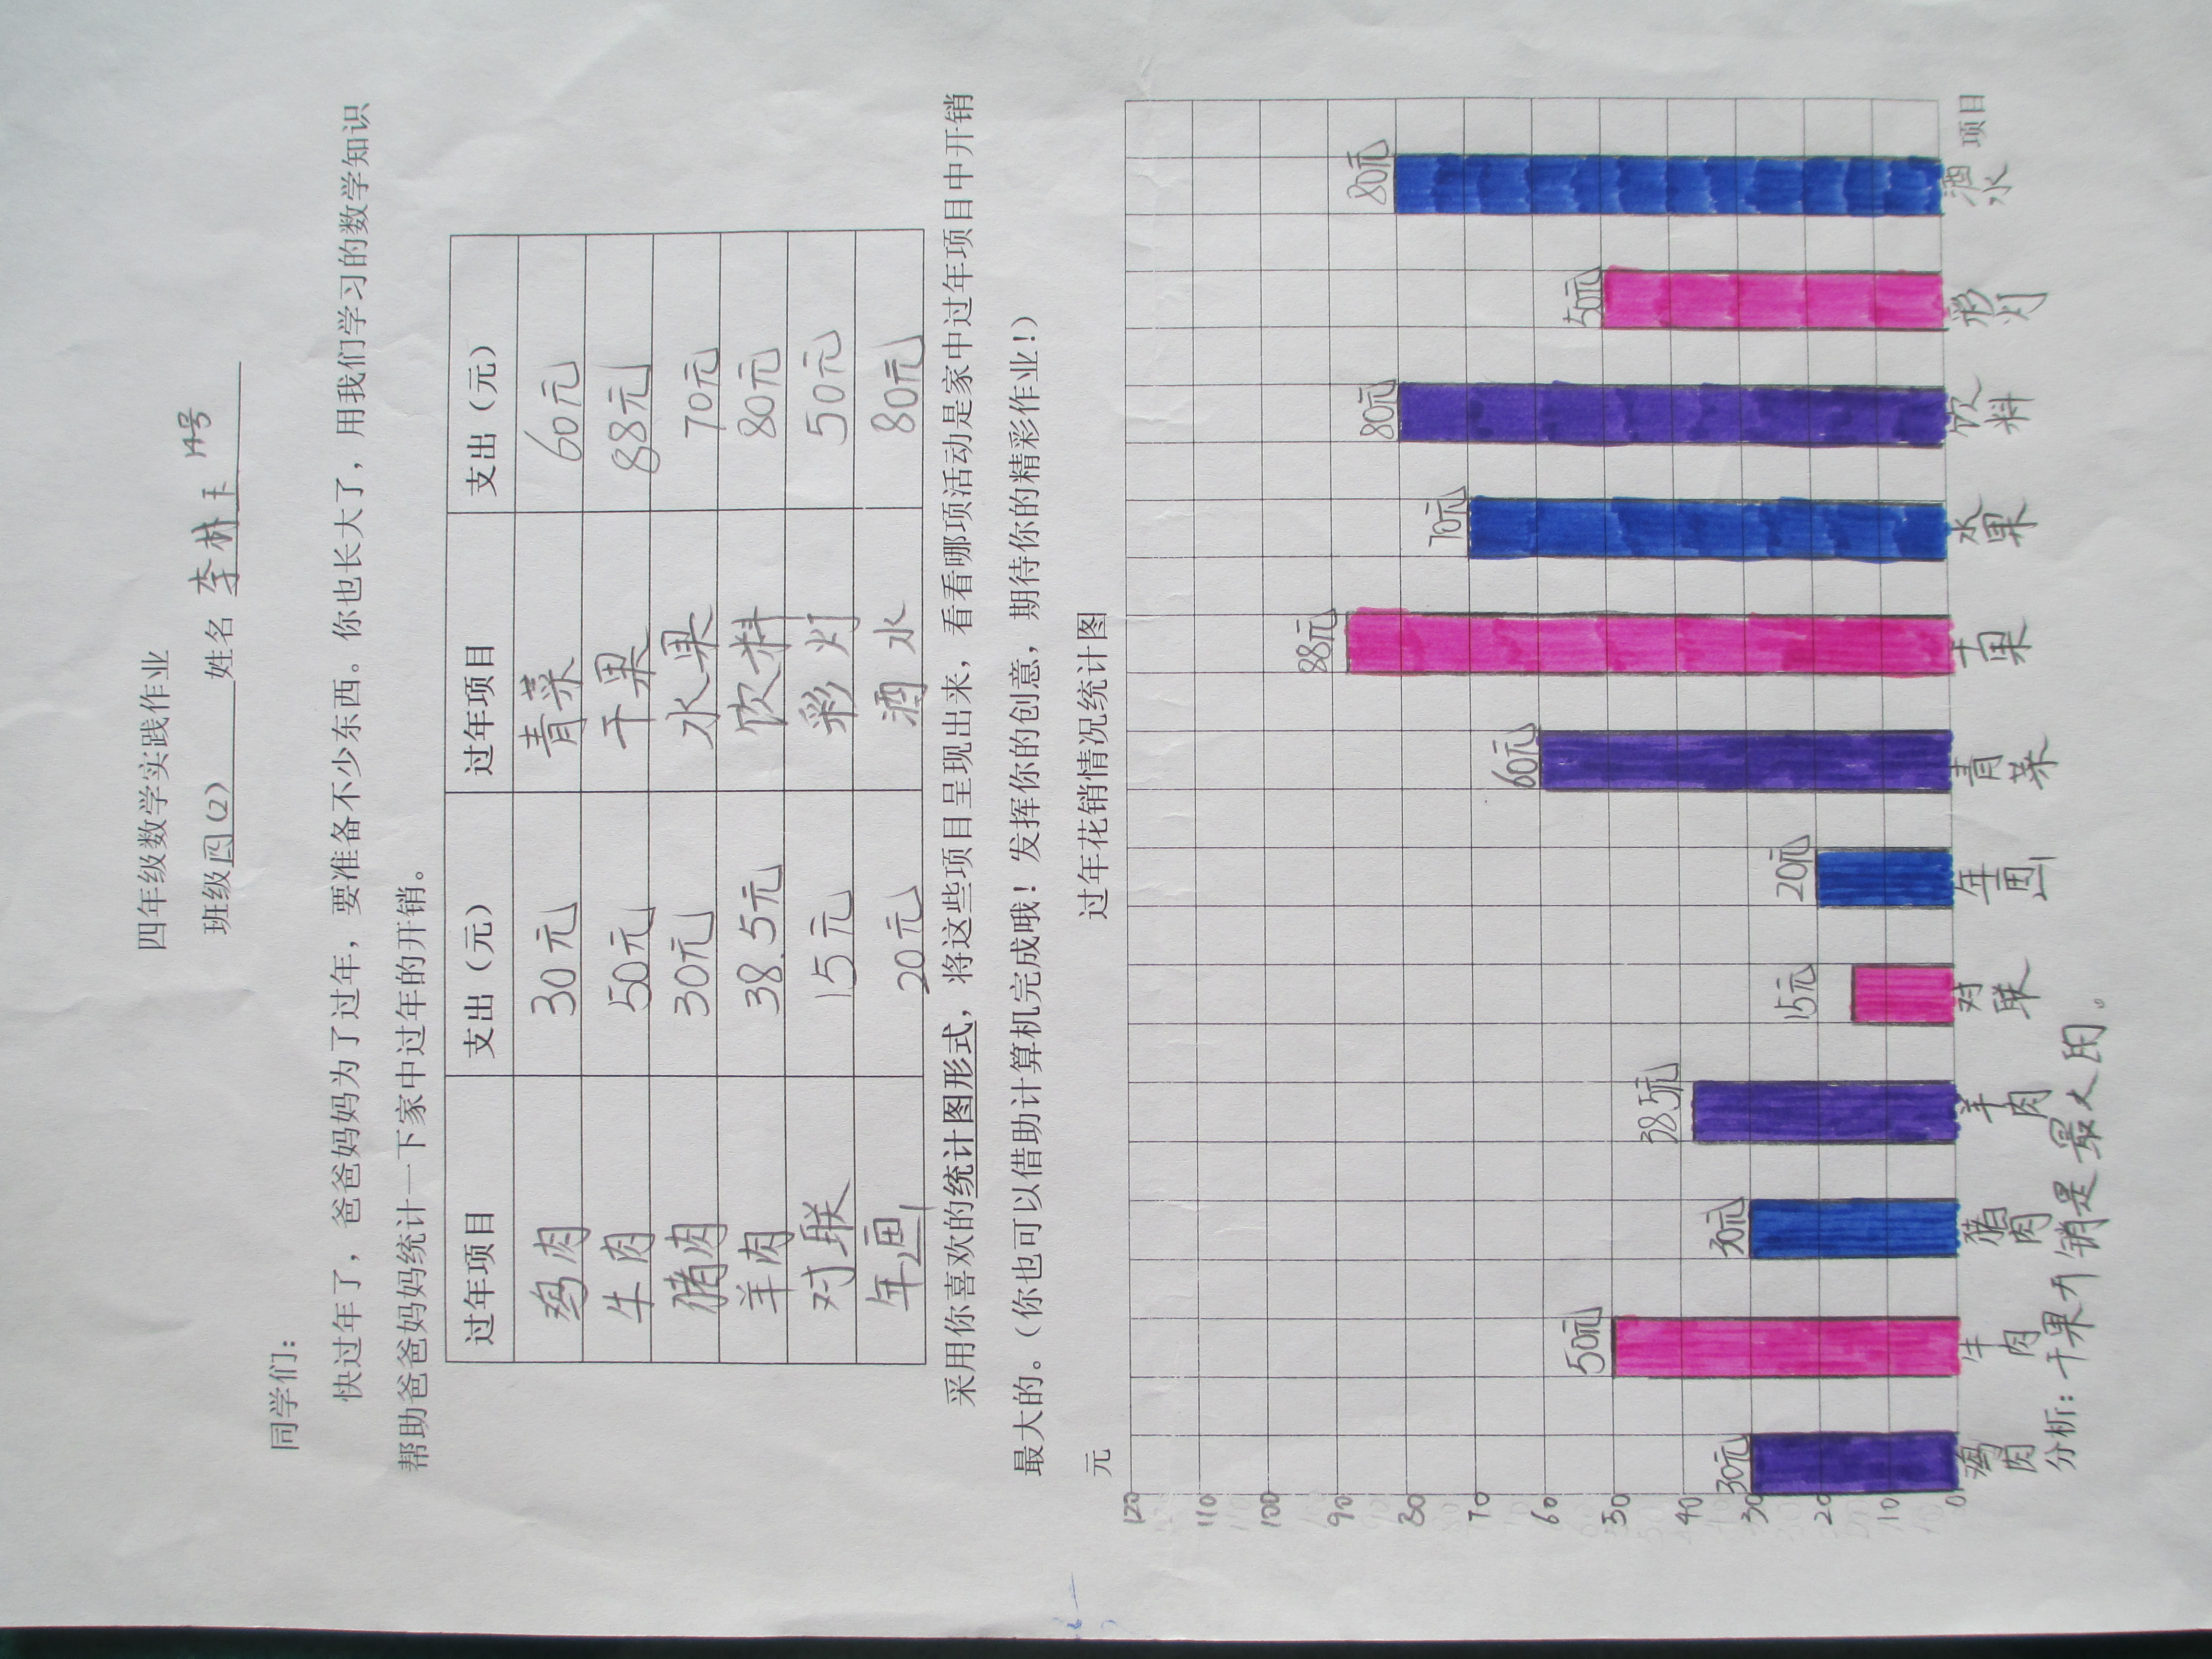 四年级数学实践作业
班级 四(2) 姓名 李林玉 14号
同学们：
快过年了，爸爸妈妈为了过年，要准备不少东西。你也长大了，用我们学习的数学知识
帮助爸爸妈妈统计一下家中过年的开销。
过年项目 支出（元） 过年项目 支出（元）
鸡肉 30元 青菜 60元
牛肉 50元 干果 88元
猪肉 30元 水果 70元
羊肉 38.5元 饮料 80元
对联 15元 彩灯 50元
年画 20元 酒水 80元
采用你喜欢的统计图形式，将这些项目呈现出来，看看哪项活动是家中过年项目中开销
最大的。（你也可以借助计算机完成哦！发挥你的创意，期待你的精彩作业！）
过年花销情况统计图
元
120
110
100
90
80
70
60
50
40
30
20
10
0
30元 50元 30元 38.5元 15元 20元 60元 88元 70元 80元 50元 80元
鸡肉 牛肉 猪肉 羊肉 对联 年画 青菜 干果 水果 饮料 彩灯 酒水 项目
分析：干果开销是最大的。